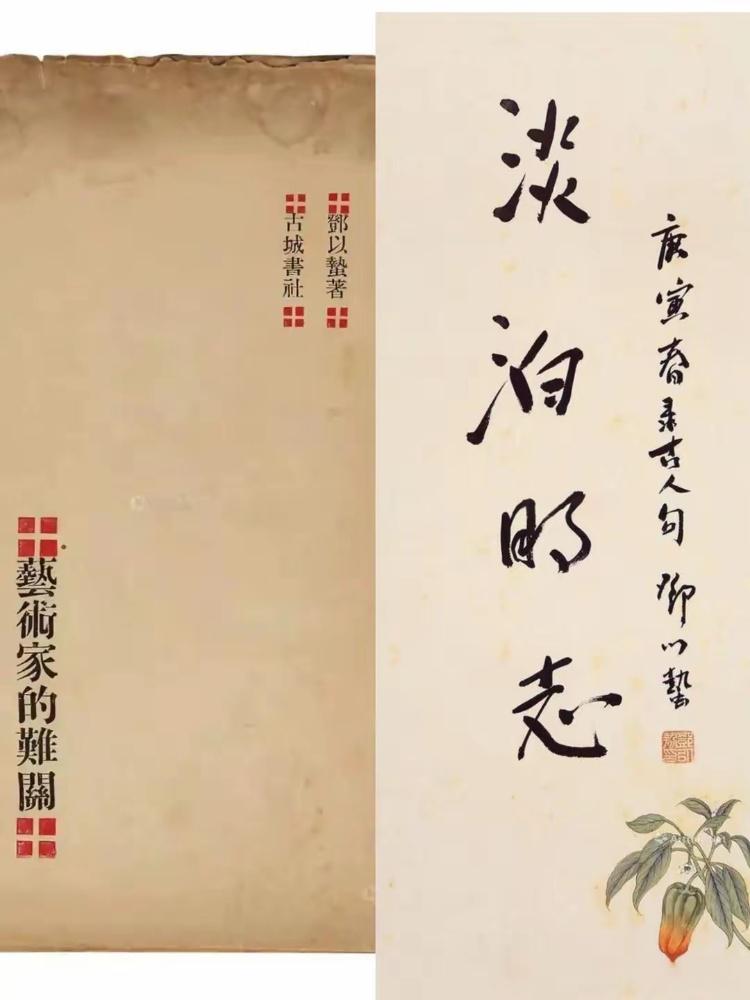 鄧以蟄著
古城書社
藝術家的難關
淡泊明志
庚寅春录古人句 鄧以蟄